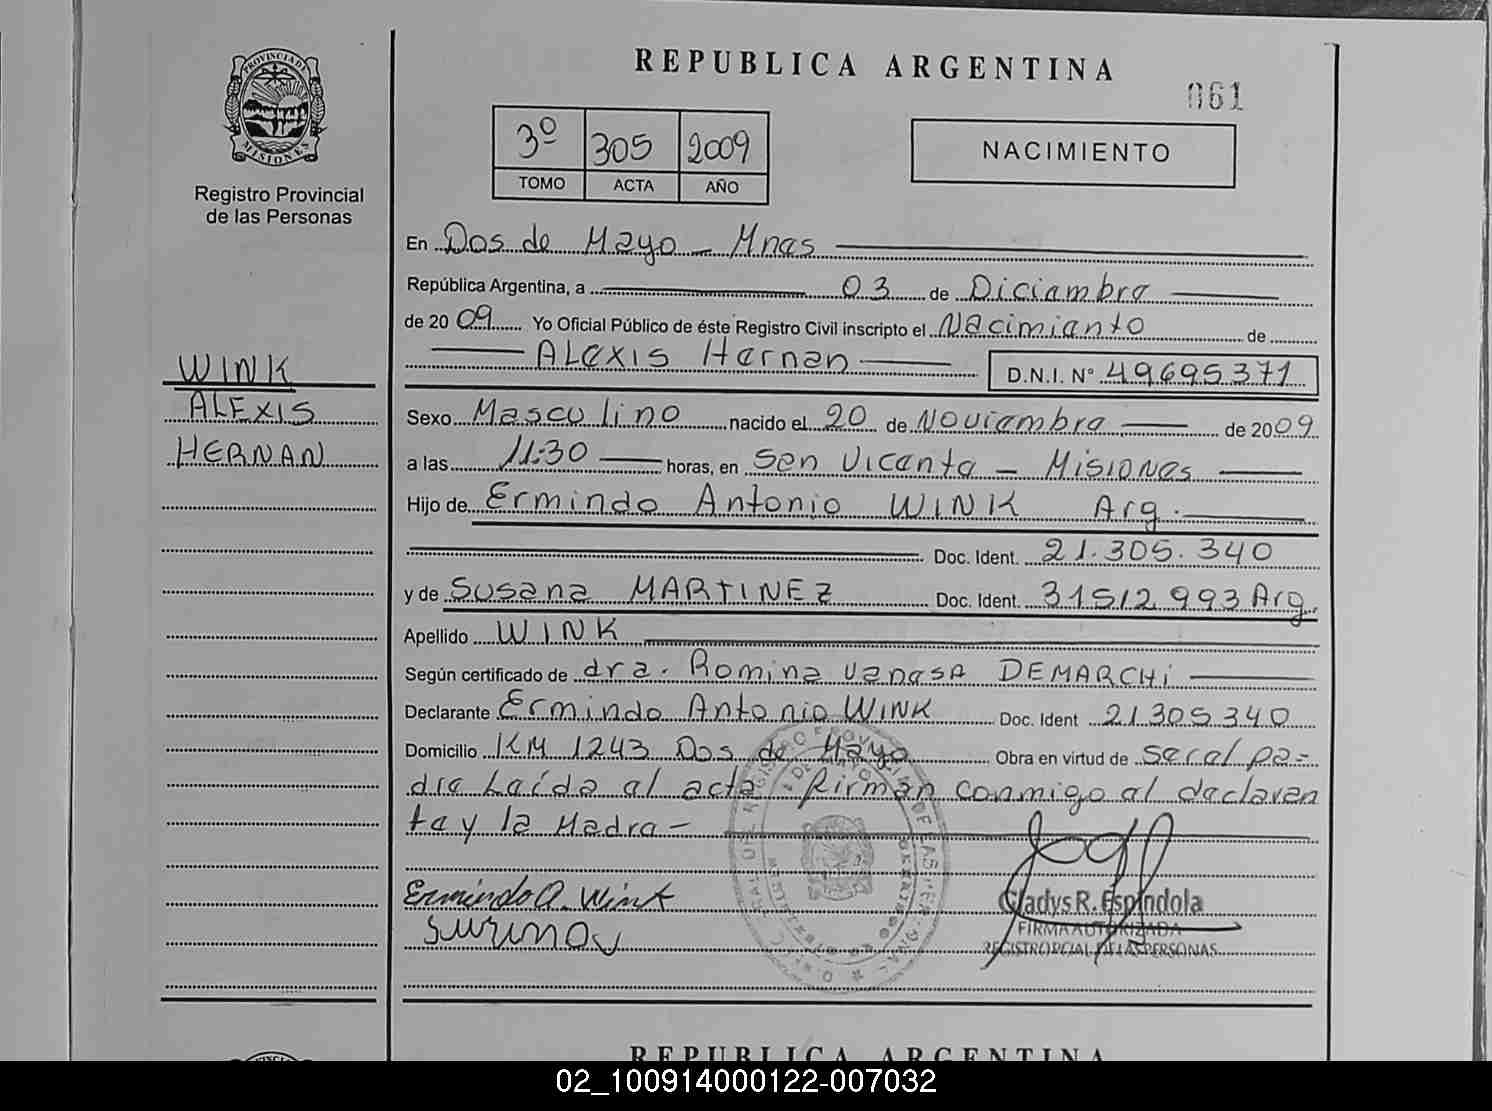 REPUBLICA ARGENTINA
061
PROVINCIA DE
MISIONES
Registro Provincial
de las Personas
3º 305 2009
TOMO ACTA AÑO
NACIMIENTO
En Dos de Mayo - Mnas
República Argentina, a 03 de Diciembre
de 2009 Yo Oficial Público de éste Registro Civil inscripto el Nacimiento de
ALEXIS Hernan D.N.I. Nº 49695371
WINK
ALEXIS
HERNAN
Sexo Masculino nacido el 20 de Noviembre de 2009
a las 11:30 horas, en San Vicente - Misiones
Hijo de Ermindo Antonio WINK Arg.
Doc. Ident. 21.305.340
y de Susana MARTINEZ Doc. Ident. 31512993 Arg.
Apellido WINK
Según certificado de dra. Romina Vanesa DEMARCHi
Declarante Ermindo Antonio WINK Doc. Ident 21305340
Domicilio KM 1243 Dos de Mayo Obra en virtud de ser el pa-
dre Leída el acta firman conmigo el declaran
te y la Madre -
Ermindo A. Wink
Gladys R. Espíndola
FIRMA AUTORIZADA
REGISTRO PCIAL. DE LAS PERSONAS
REPUBLICA ARGENTINA
02_100914000122-007032